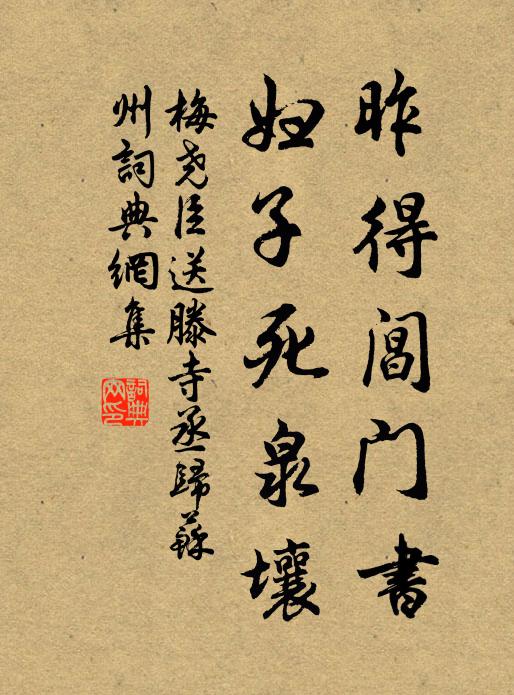 昨得閶门書
妇子死泉壤
梅尧臣送滕寺丞歸蘇
州詞典網集
詞典网印